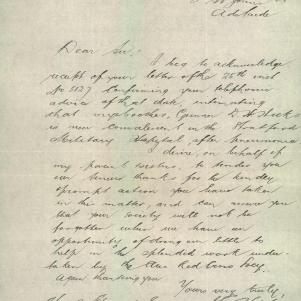 Adelaide
Dear Sir,
I beg to acknowledge
receipt of your letter of the 25th inst
No 5127 confirming your telephone
advice of that date, intimating
that my brother, Gunner D. H. Hicks
is now convalescent in the
Military Hospital after Pneumonia
I desire, on behalf of
my parent & sisters, to tender you
our sincere thanks for the kindly
& prompt action you have taken
in the matter, and can assure you
that your Society will not be
forgotten when we have an
opportunity of doing our little to
help in the splendid work under-
taken by the Red Cross Socy.
Again thanking you
Yours very truly,